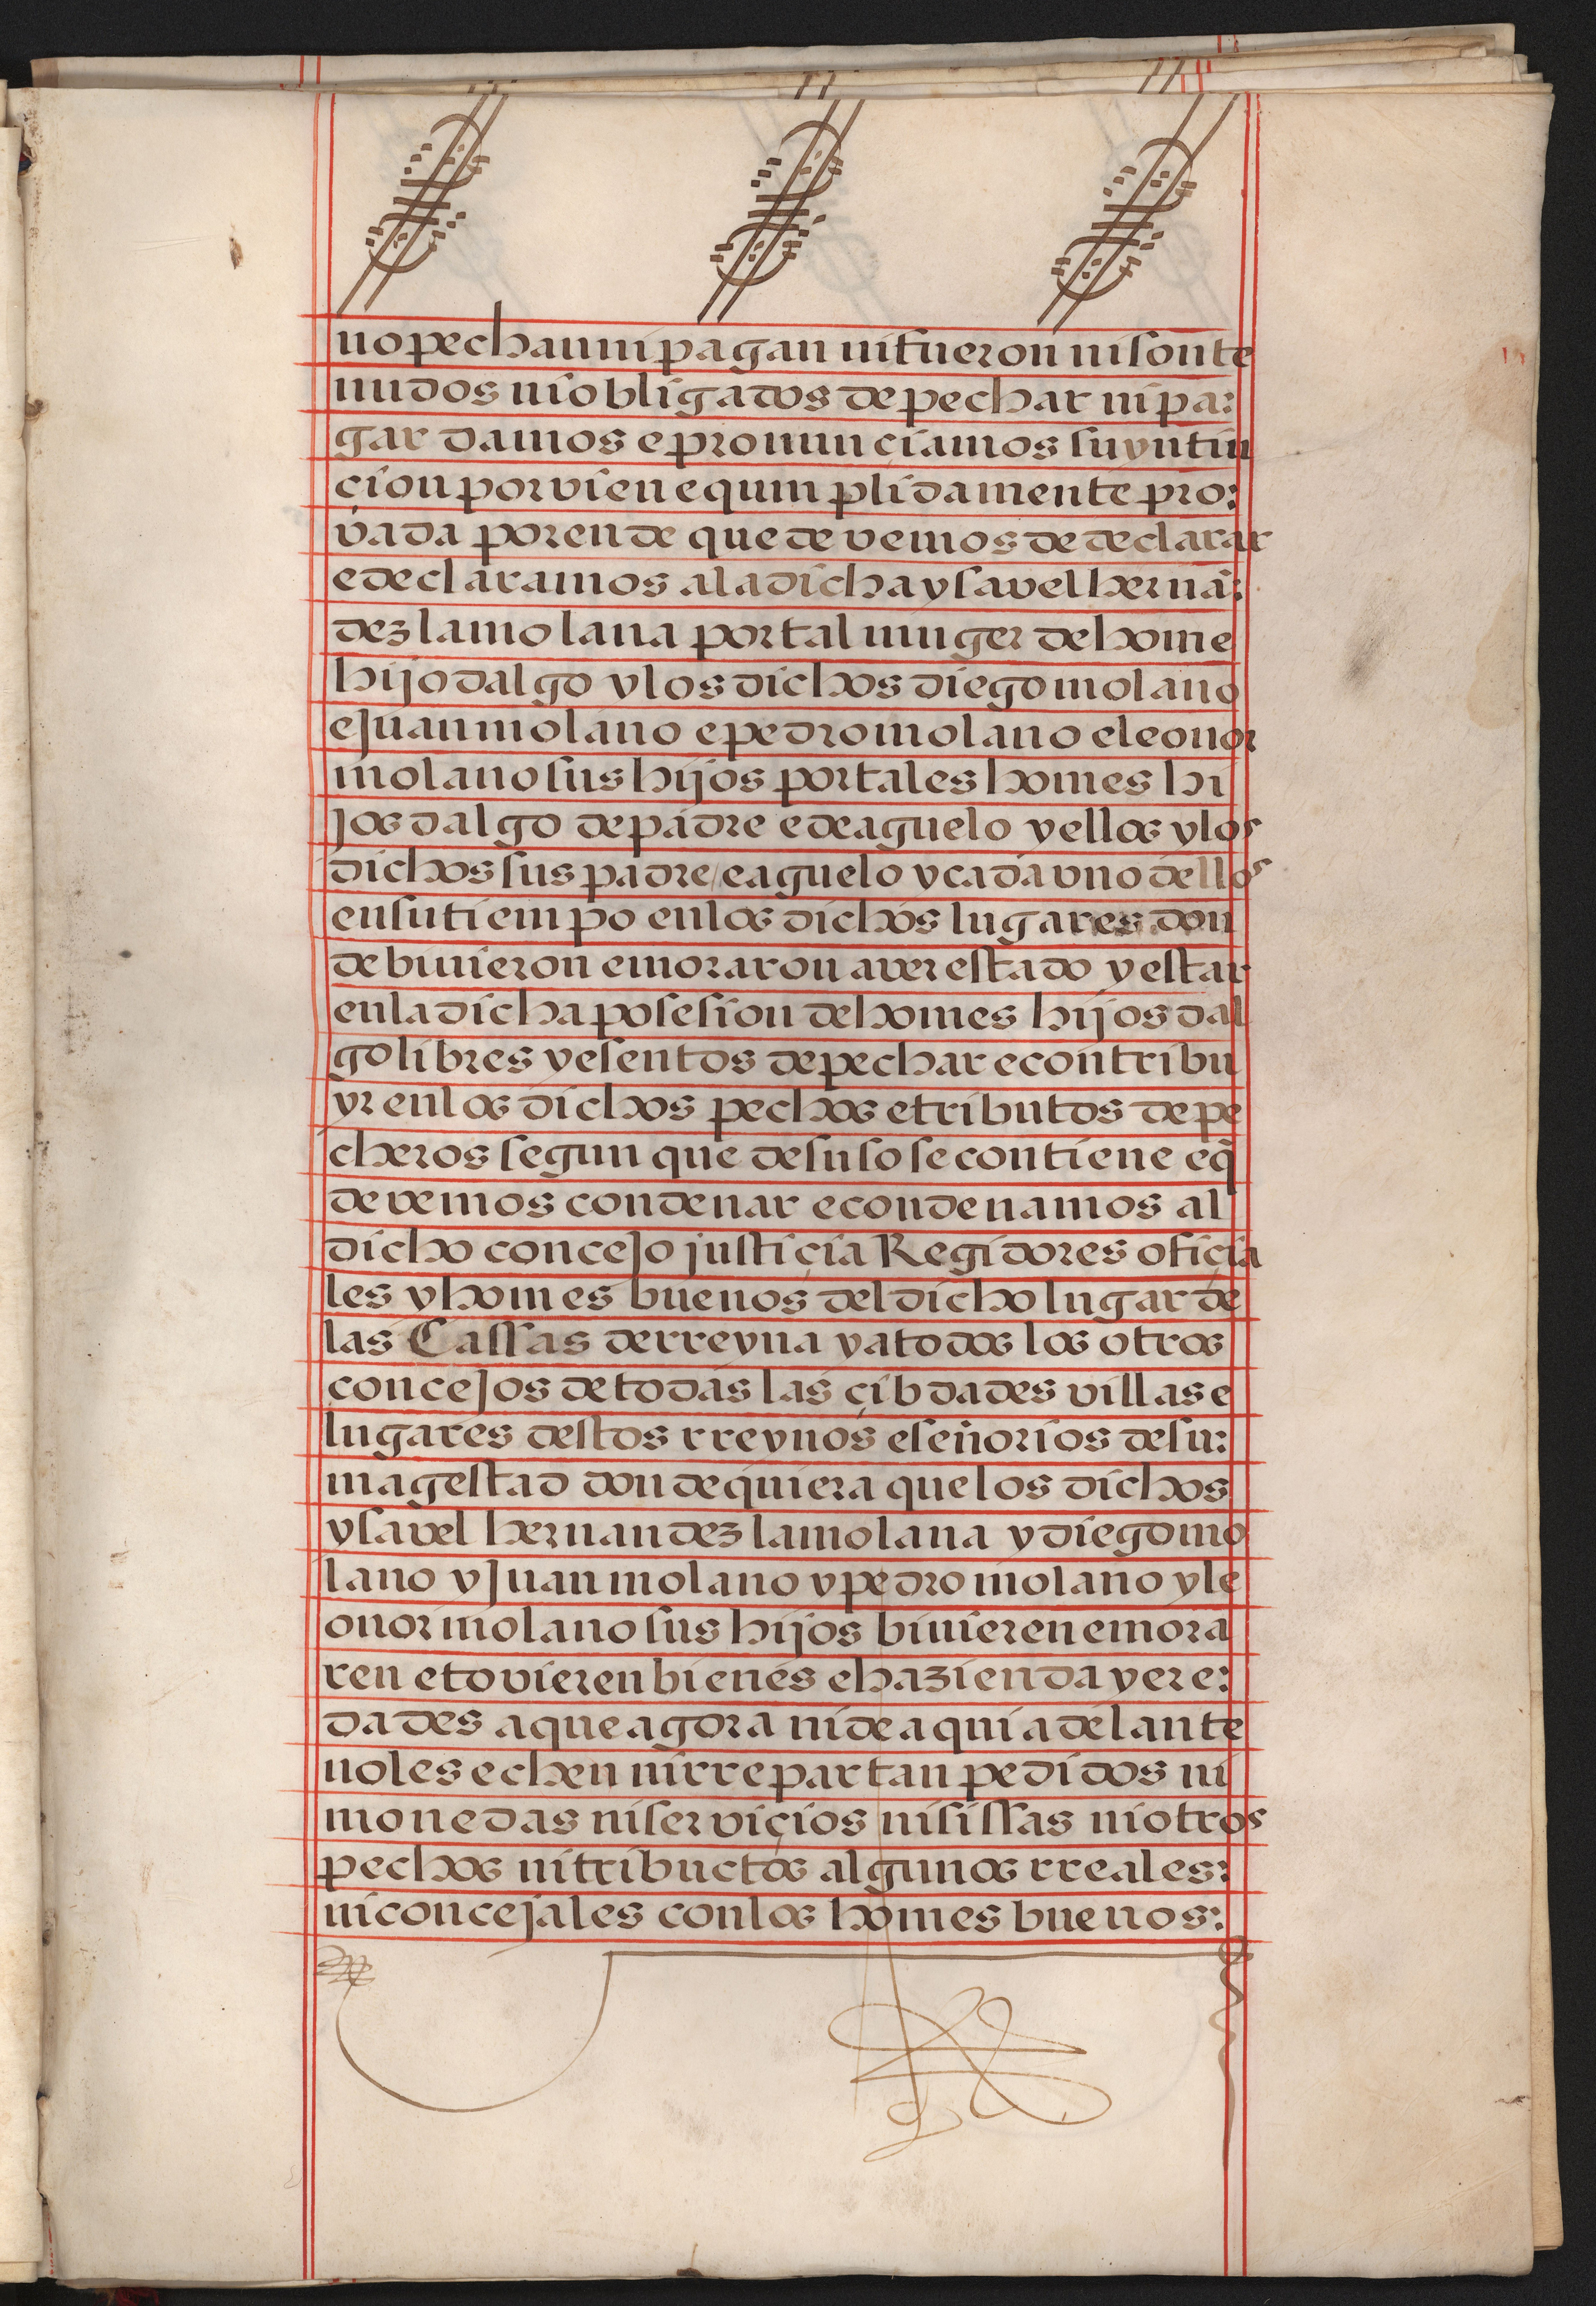 no pechan ni pagan ni fueron ni son te
nudos ni obligados de pechar ni pa:
gar damos e pronunçiamos su yntin
çion por vien e qumplidamente pro:
vada por ende que devemos de declarar
e declaramos a la dicha ysavel hernã:
dez la molana por tal muger de home
hijodalgo y los dichos diego molano
e Juan molano e pedro molano e leonor
molano sus hijos por tales homes hi
Josdalgo de padre e de aguelo y ellos y los
dichos sus padre / e aguelo y cada uno dellos
en su tiempo en los dichos lugares don
de bivieron e moraron aver estado y estar
en la dicha posesion de homes hijosdal
go libres y esentos de pechar e contribu
yr en los dichos pechos e tributos de pe
cheros segun que de suso se contiene e q̃
devemos condenar e condenamos al
dicho conceJo justiçia Regidores ofiçia
les y homes buenos del dicho lugar de
las Cassas de rreyna y a todos los otros
conceJos de todas las çibdades villas e
lugares destos rreynos e señorios de su:
magestad donde quiera que los dichos
ysavel hernandez la molana y diego mo
lano y Juan molano y pedro molano y le
onor molano sus hijos bivieren e mora
ren e tovieren bienes e hazienda y ere:
dades a que agora ni de aqui adelante
no les echen ni rrepartan pedidos ni
monedas ni serviçios ni sissas ni otros
pechos ni tributtos algunos rreales:
ni concejales con los homes buenos: